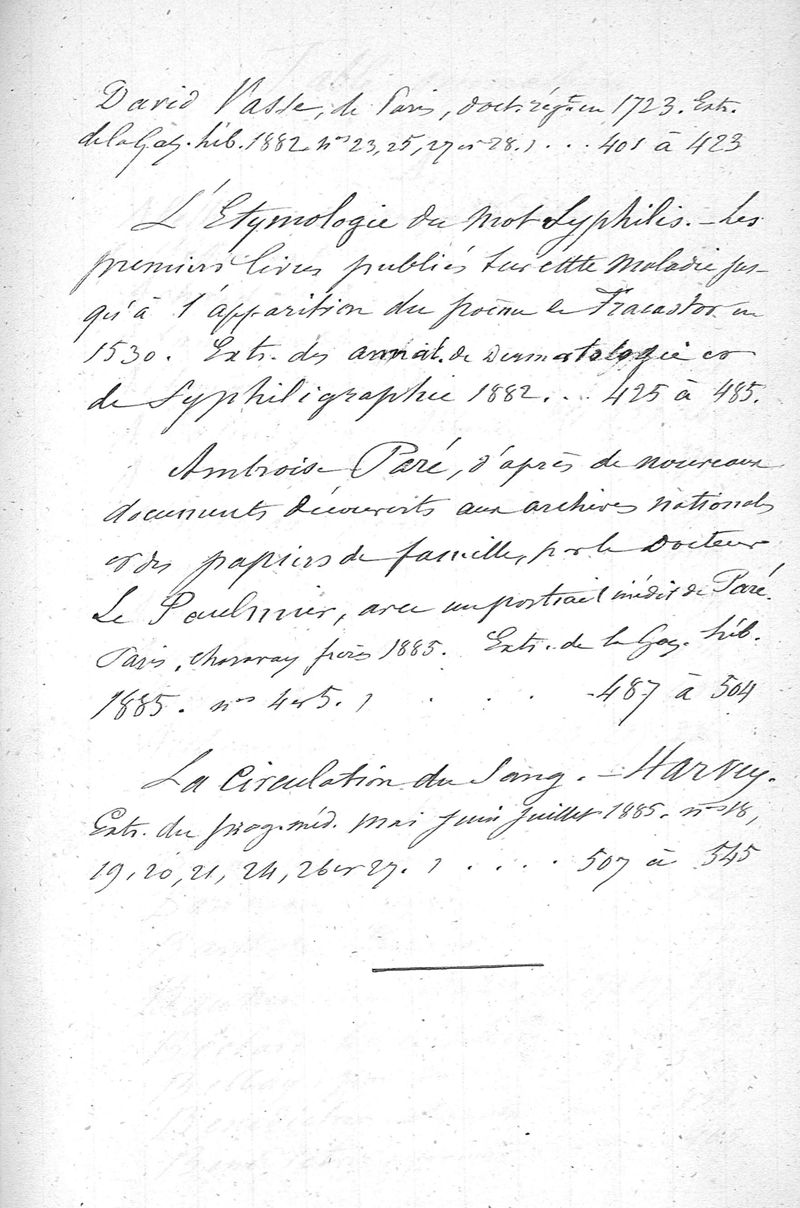 David Vasse, de Paris, doct. régt en 1723. Extr.
de la Gaz. héb. 1882 nos 23, 25, 27 et 28.) . . . 401 à 423
L'Etymologie du mot Syphilis. – Les
premiers livres publiés sur cette maladie jus-
qu'à l'apparition du poëme de Fracastor en
1530. Extr. des annal. de Dermatologie et
de Syphiligraphie 1882. . . 425 à 485.
Ambroise Paré, d'après de nouveaux
documents découverts aux archives nationales
et des papiers de famille, par le Docteur
Le Paulmier, avec un portrait inédit de Paré.
Paris, Charavay frères 1885. Extr. de la Gaz. héb.
1885. nos 4 et 5. ) . . . . 487 à 504
La Circulation du Sang. – Harvey.
Extr. du prog. méd. mai juin juillet 1885. nos 18,
19, 20, 21, 24, 26 et 27. ) . . . . 507 à 545